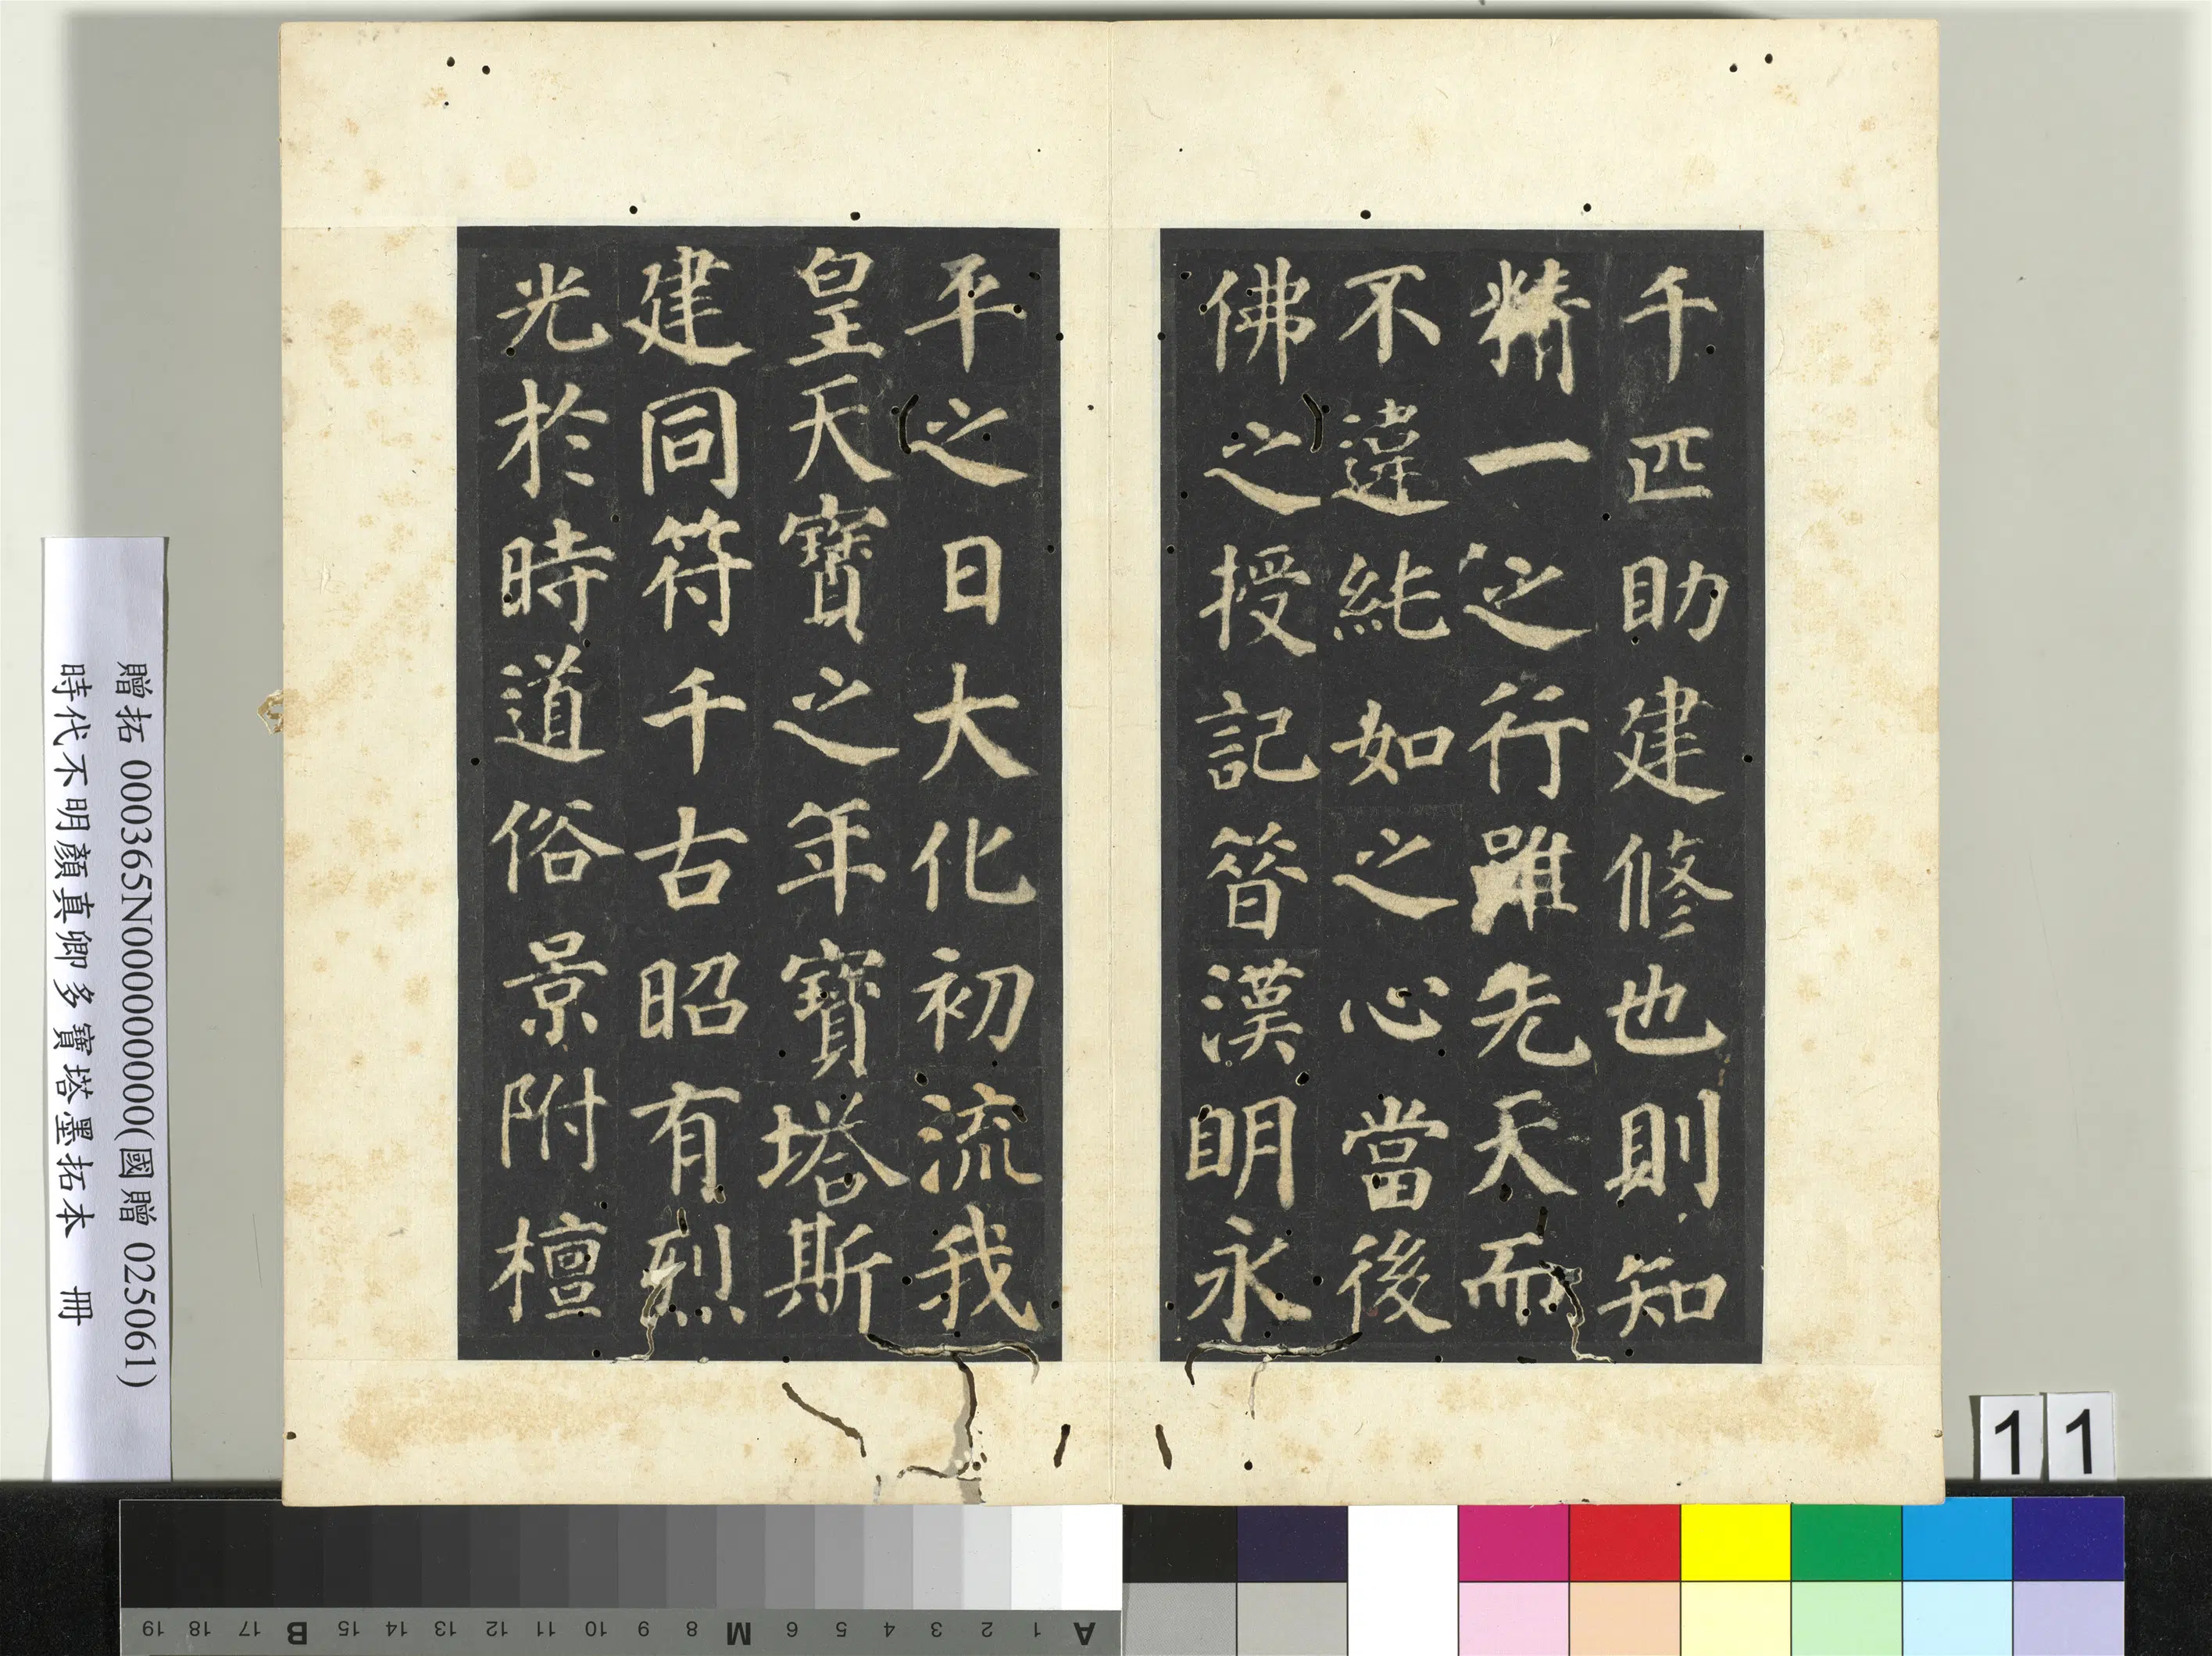 千匹助建修也則知
精一之行雖先天而
不違純如之心當後
佛之授記昝漢明永
平之日大化初流我
皇天寶之年寶塔斯
建同符千古昭有烈
光於時道俗景附檀
贈拓 000365N000000000(國贈 025061)
時代不明顏真卿多寶塔墨拓本 冊
11
19 18 17 B 15 14 13 12 11 10 9 8 M 6 5 4 3 2 1 A